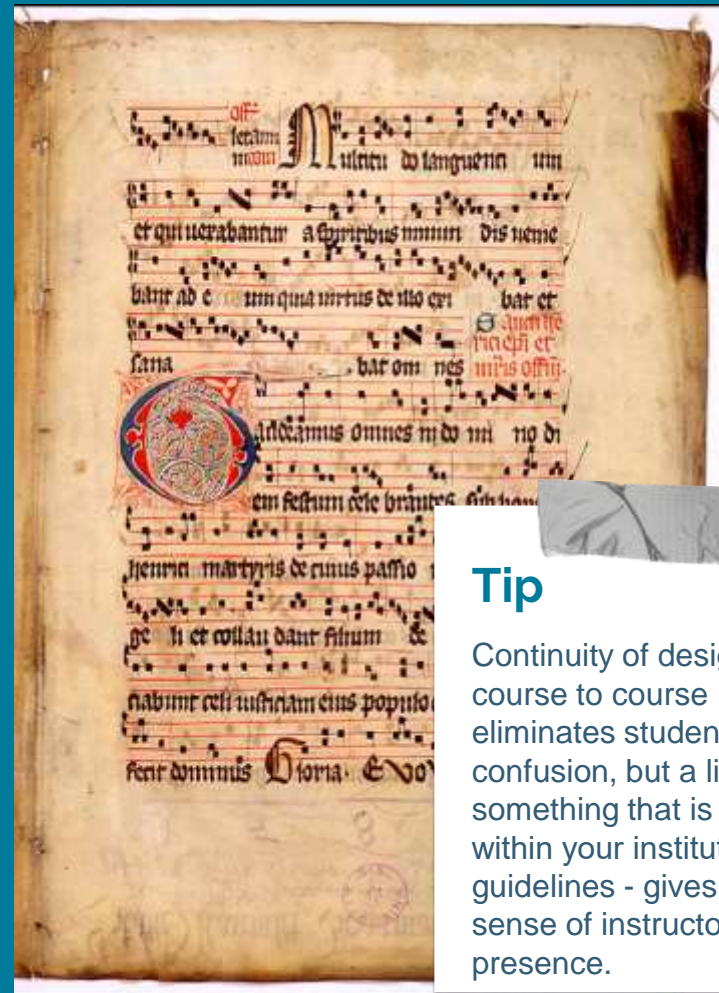 off̄
leram
Multitu do languenti um
et qui uexabantur a spiritibus inmun dis uenie
bant ad e um quia uirtus de illo exi bat et
sana bat om nes
Gaudeamus omnes in do mi no di
em festum cele brantes sub hono
henrici martyris de cuius passio
ge li et collau dant filium de
ciabunt celi iusticiam eius populo
fecit dominus Gloria. Euo
Tip
Continuity of desi
course to course
eliminates studen
confusion, but a li
something that is
within your institut
guidelines - gives
sense of instructo
presence.